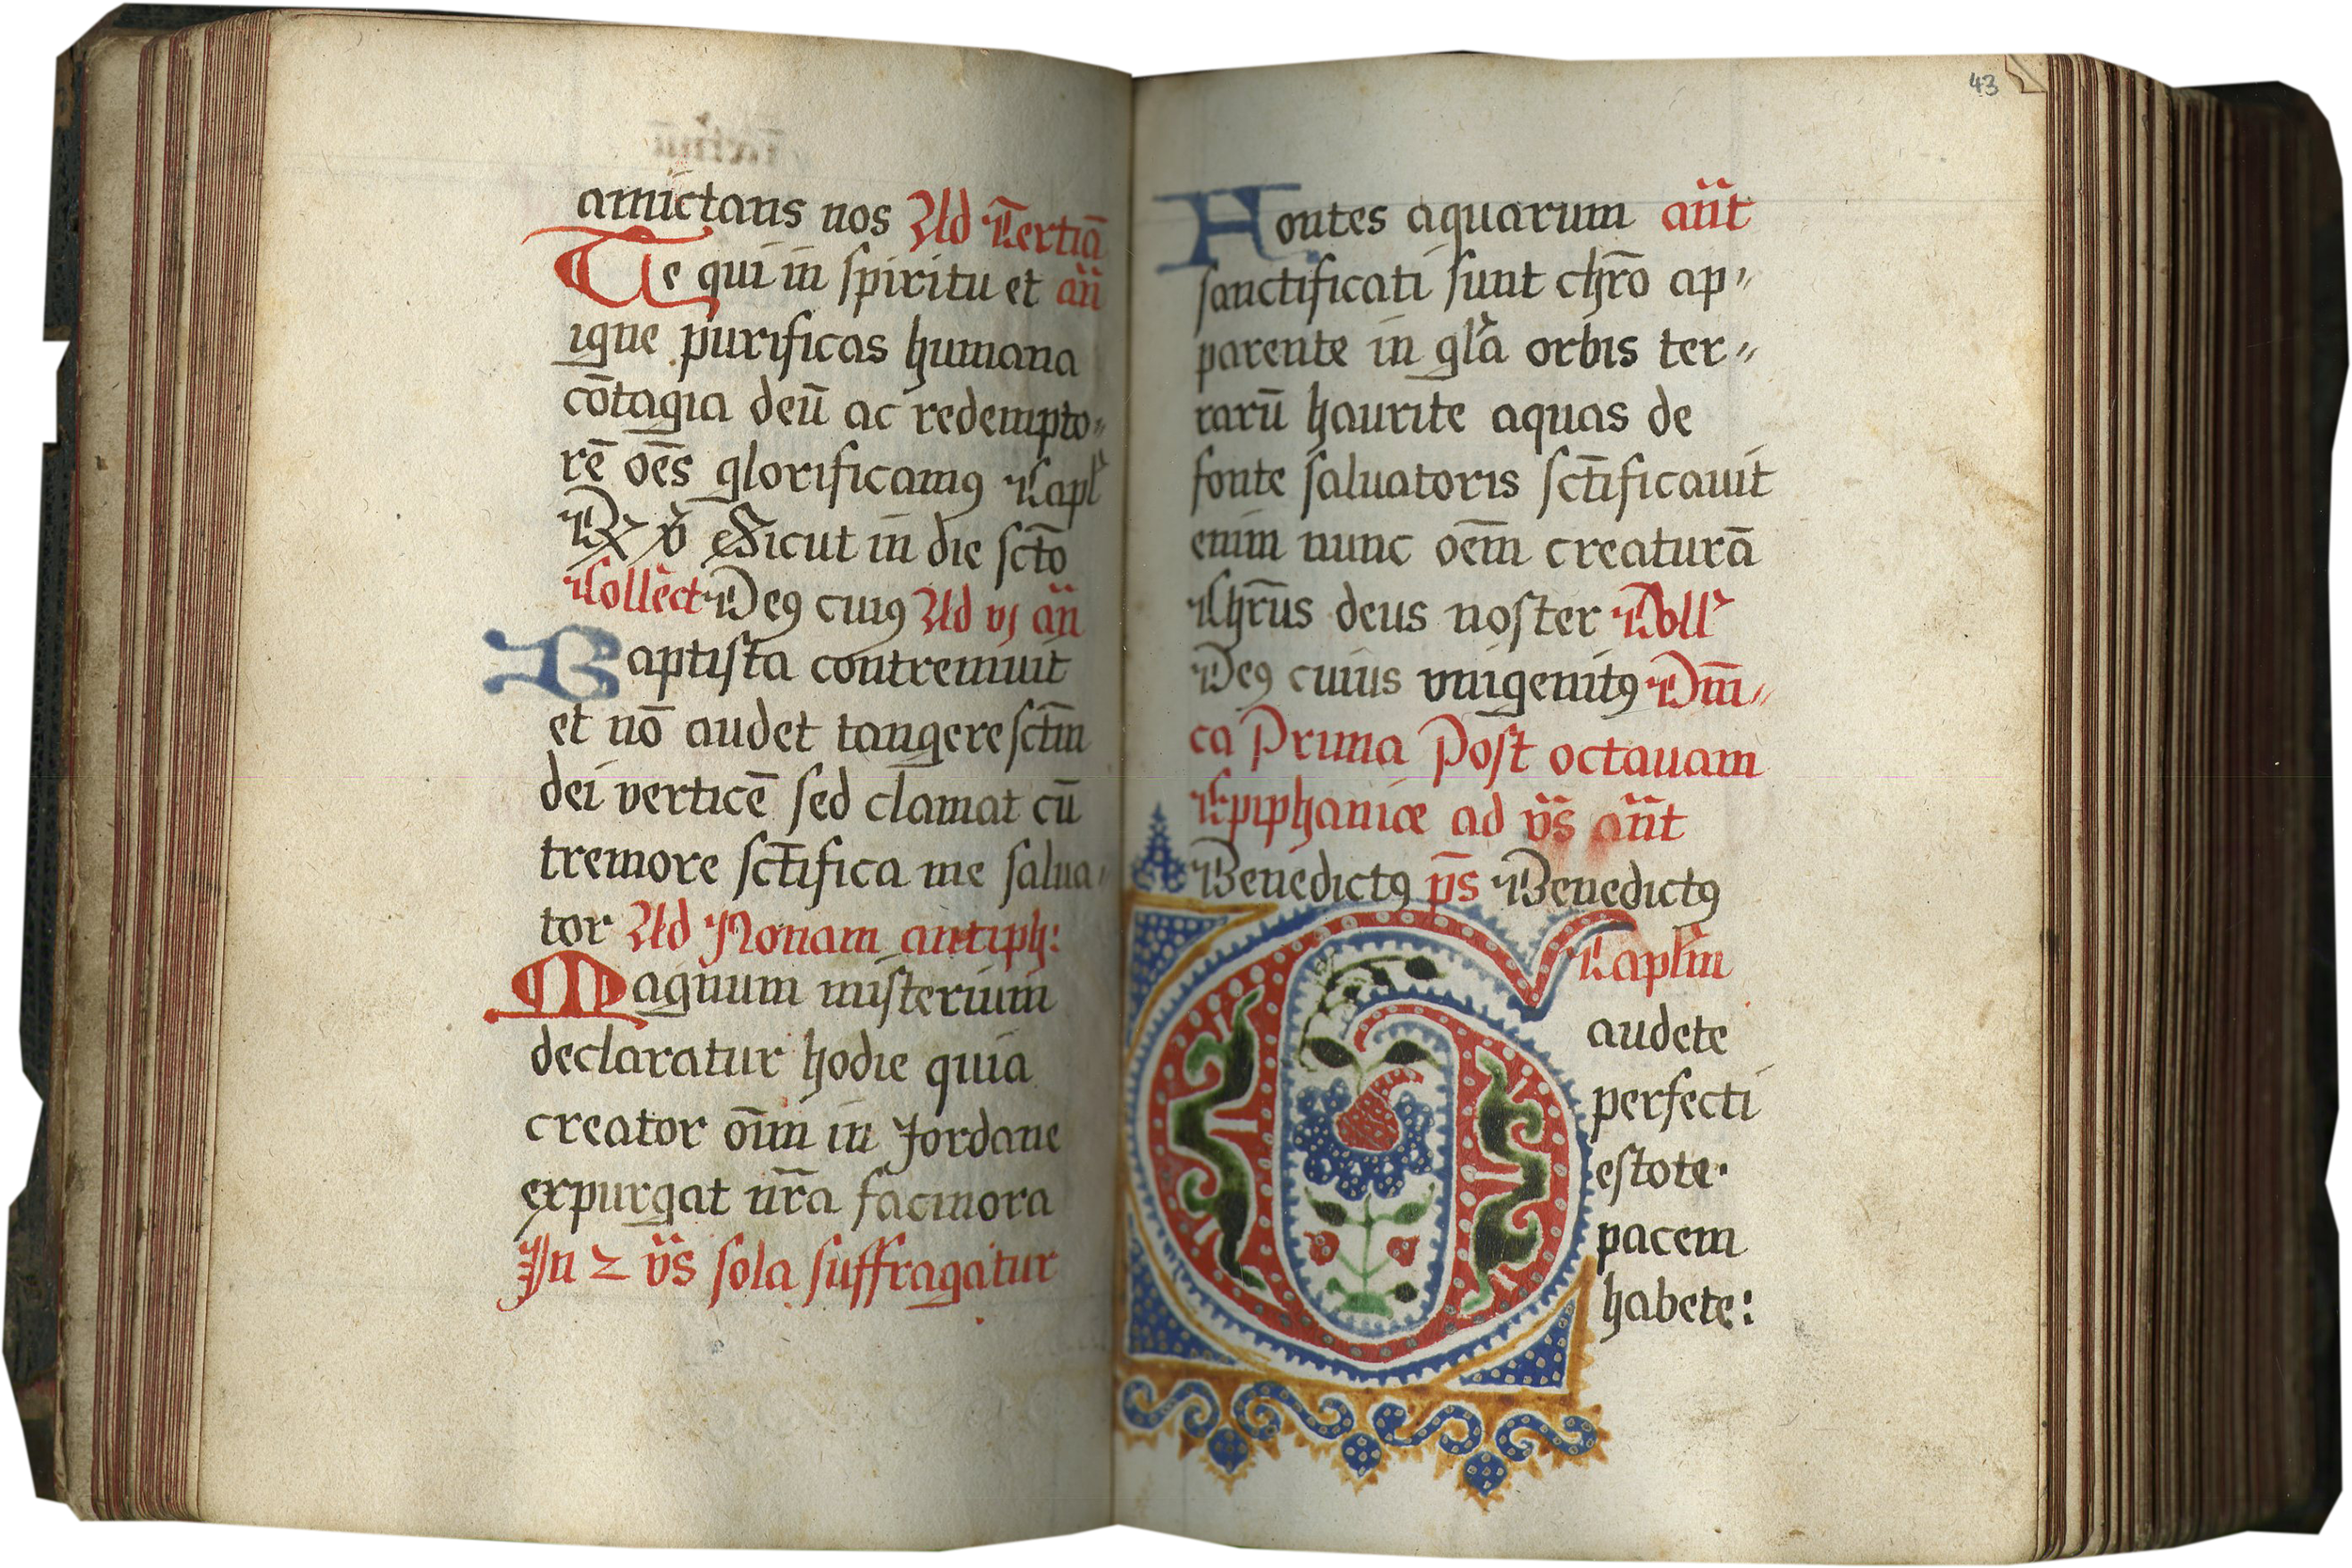 amictans nos Ad Tertiā
Te qui in spiritu et an̄
igne purificas humana
cōtagia deū ac redempto⸗
rē oēs glorificamꝯ Capl̓
℞ ꝟ Sicut in die sctō
Collect Deꝯ cuiꝯ Ad vj an̄
Baptista contremuit
et nō audet tangere sctm̄
dei verticē sed clamat cū
tremore sct̄ifica me salua⸗
tor Ad Nonam antiph:
Magnum misterium
declaratur hodie quia
creator oīm in Jordane
expurgat nr̄a facinora
In 2 vs̄ sola suffragatur
43
Fontes aquarum an̄t
sanctificati sunt chr̄o ap⸗
parente in gl̓a orbis ter⸗
rarū haurite aquas de
fonte saluatoris sct̄ificauit
enim nunc oēm creaturā
Chr̄us deus noster Coll̓
Deꝯ cuius vnigenitꝯ Dm̄⸗
ca Prima Post octauam
Epiphaniæ ad vs̄ an̄t
Benedictꝯ ps̄ Benedictꝯ
Caplm̄
Gaudete
perfecti
estote.
pacem
habete: